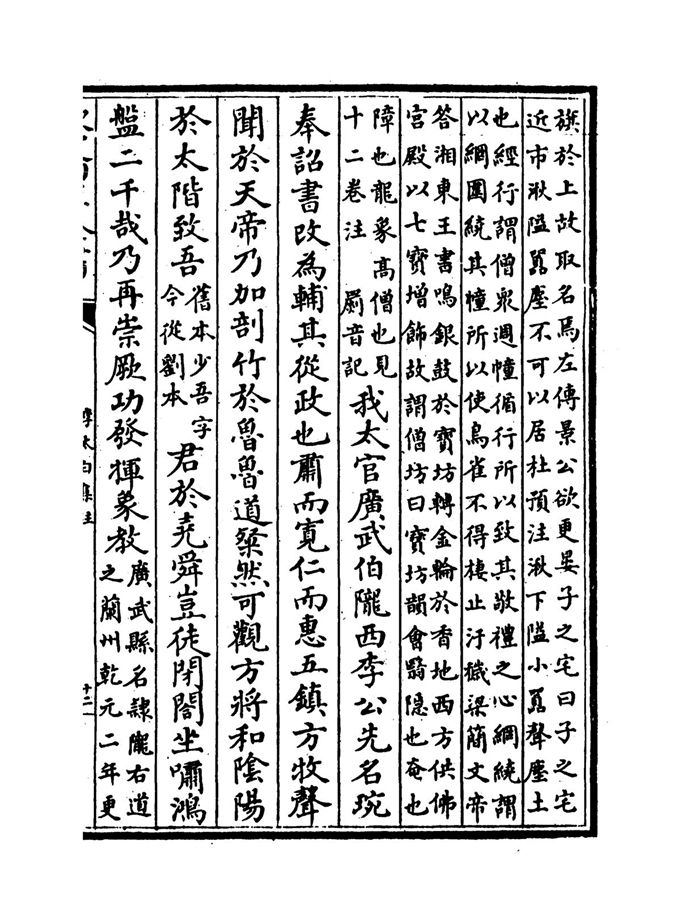 旗於上故取名焉左傳景公欲更晏子之宅曰子之宅
近市湫隘囂塵不可以居杜預注湫下隘小囂聲塵土
也經行謂僧衆週幢循行所以致其敬禮之心網繞謂
以網圍繞其幢所以使鳥雀不得棲止汙穢梁簡文帝
答湘東王書鳴銀鼓於寳坊轉金輪於香地西方供佛
宫殿以七寳增飾故謂僧坊曰寳坊韻會翳隐也奄也
障也龍象髙僧也見
十二卷注 罽音記
我太官廣武伯隴西李公先名琬
奉詔書改為輔其從政也肅而寛仁而惠五鎮方牧聲
聞於天帝乃加剖竹於魯魯道粲然可觀方將和陰陽
於太階致吾
舊本少吾字
今從劉本
君於堯舜豈徒閉閤坐嘯鴻
盤二千哉乃再崇厥功發揮象教
廣武縣名隷隴右道
之蘭州乾元二年更
李太白集注
十二